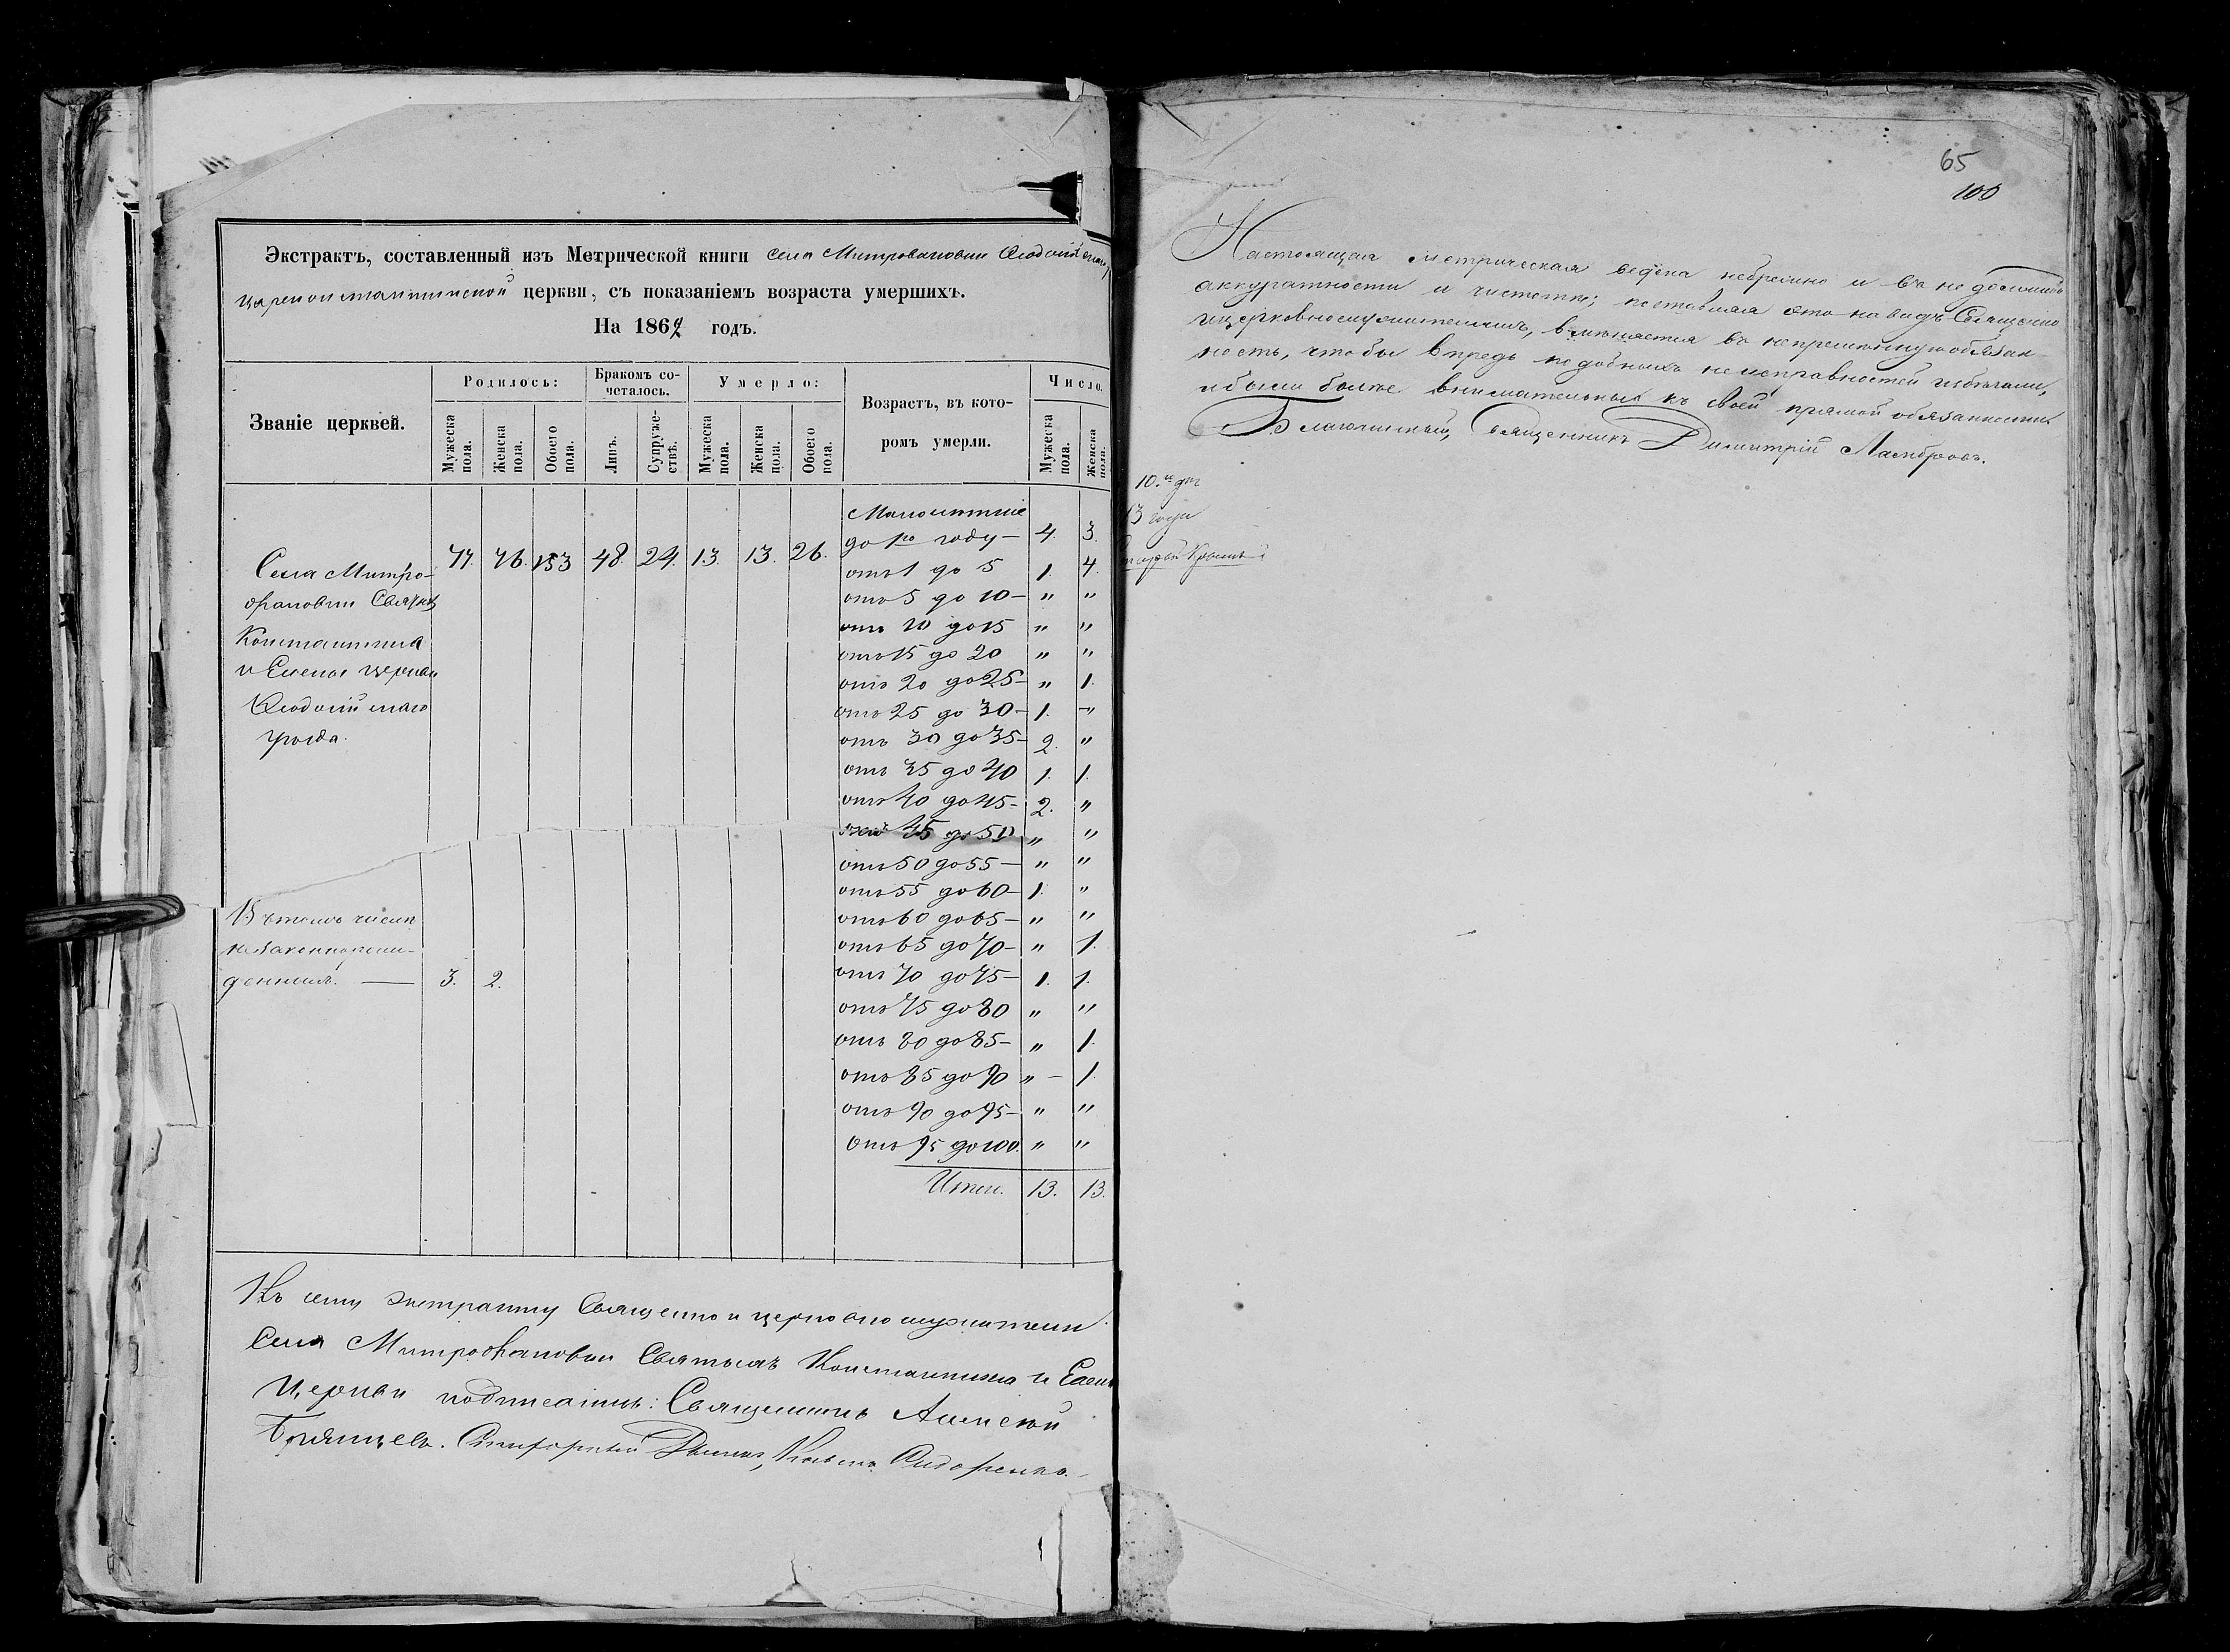 Экстрактъ, составленный изъ Метрической книги села Митрофановки Ѳеодосійскаго
Цареконстантиновской церкви, съ показаніемъ возраста умершихъ.
На 1862 годъ.
Званіе церквей.
Родилось:
Бракомъ со-
четалось.
Умерло:
Возрастъ, въ кото-
ромъ умерли.
Число.
Мужеска пола.
Женска пола.
Обоего пола.
Лицъ.
Супруже-
ствъ.
Мужеска пола.
Женска пола.
Обоего пола.
Мужеска пола.
Женска пола.
Села Митро-
фановки Святыхъ
Константина
и Елены церкви
Ѳеодосійскаго
уѣзда.
77. 76. 153 48. 24. 13. 13. 26.
Малолѣтніе
до 1го году — 4. 3.
отъ 1 до 5 1. 4.
отъ 5 до 10 — " "
отъ 10 до 15 " "
отъ 15 до 20 " "
отъ 20 до 25 — " 1.
отъ 25 до 30 — 1. "
отъ 30 до 35 — 2. "
отъ 35 до 40 1. 1.
отъ 40 до 45 — 2. "
отъ 45 до 50 " "
отъ 50 до 55 — " "
отъ 55 до 60 — 1. "
отъ 60 до 65 — " "
отъ 65 до 70 — " 1.
отъ 70 до 75 — 1. 1.
отъ 75 до 80 " "
отъ 80 до 85 — " 1.
отъ 85 до 90 " — 1.
отъ 90 до 95 — " "
отъ 95 до 100. " "
Итого. 13. 13.
Въ томъ числѣ
незаконнорож-
денныхъ. — 3. 2.
Къ сему экстракту Священно и церковнослужители
Села Митрофановки Святыхъ Константина и Елены
Церкви подписались: Священникъ Алексѣй
Брянцевъ. Сидоренко.
65
100
Настоящая метрическая ведена небрежно и въ не должной
аккуратности и чистотѣ; поставляя это на видъ Священно
и церковнослужителямъ, вмѣняется въ непремѣнную обязан-
ность, чтобы впредь подобныхъ неисправностей избѣгали,
и были болѣе внимательны къ своей прямой обязанности
Благочинный, Священникъ Димитрій
10.
3 года
Старый Крымъ